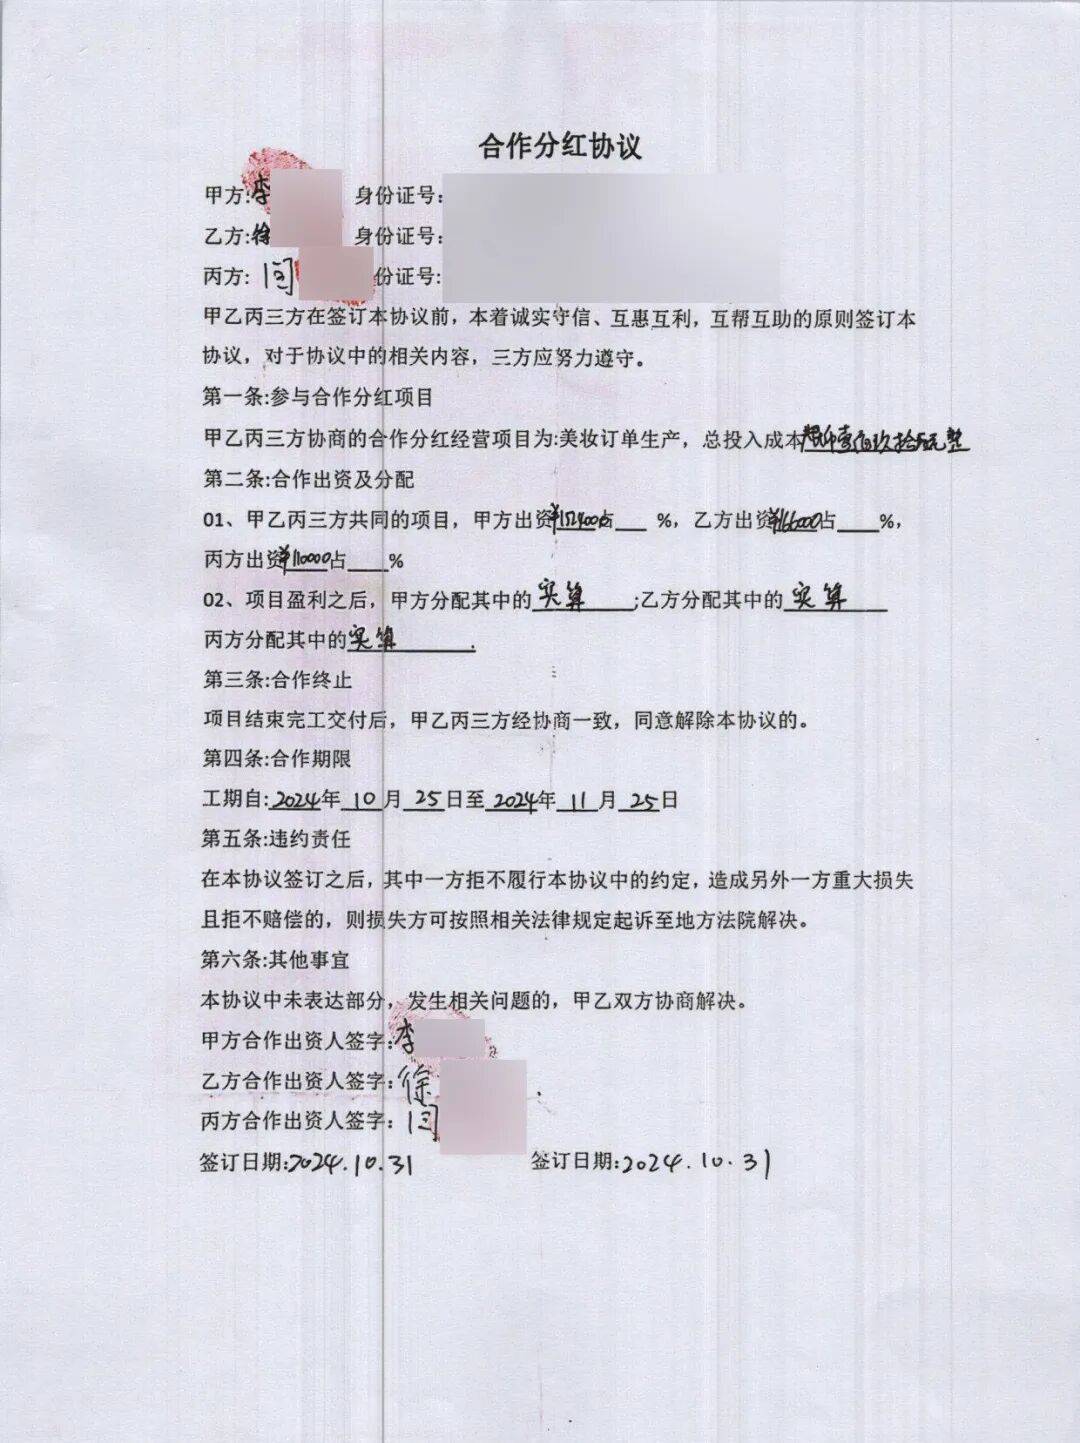 合作分红协议
甲方:李 身份证号:
乙方:徐 身份证号:
丙方: 闫 份证号:
甲乙丙三方在签订本协议前，本着诚实守信、互惠互利，互帮互助的原则签订本
协议，对于协议中的相关内容，三方应努力遵守。
第一条:参与合作分红项目
甲乙丙三方协商的合作分红经营项目为:美妆订单生产，总投入成本 仟壹佰玖拾 元整
第二条:合作出资及分配
01、甲乙丙三方共同的项目，甲方出资¥152400占___ %，乙方出资¥166000占____%，
丙方出资¥110000占____%
02、项目盈利之后，甲方分配其中的 实算 ;乙方分配其中的 实算
丙方分配其中的 实算 .
第三条:合作终止
项目结束完工交付后，甲乙丙三方经协商一致，同意解除本协议的。
第四条:合作期限
工期自: 2024年 10 月 25日至 2024年 11 月 25日
第五条:违约责任
在本协议签订之后，其中一方拒不履行本协议中的约定，造成另外一方重大损失
且拒不赔偿的，则损失方可按照相关法律规定起诉至地方法院解决。
第六条:其他事宜
本协议中未表达部分，发生相关问题的，甲乙双方协商解决。
甲方合作出资人签字:李
乙方合作出资人签字:徐
丙方合作出资人签字: 闫
签订日期:2024.10.31 签订日期:2024.10.31